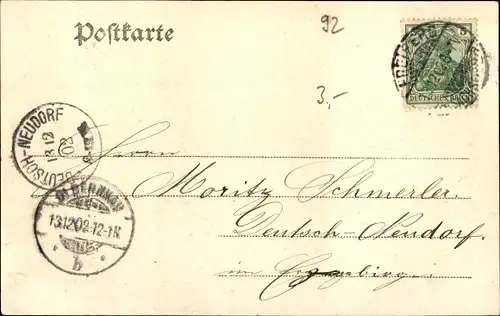 Postkarte
92
3,-
DEUTSCHES REICH
DEUTSCH-NEUDORF
13 12
02
OLBERNHAU
13.12.02.12-1N
b
Herrn
Moritz Schmerler.
Deutsch-Neudorf.
im Erzgebirg.